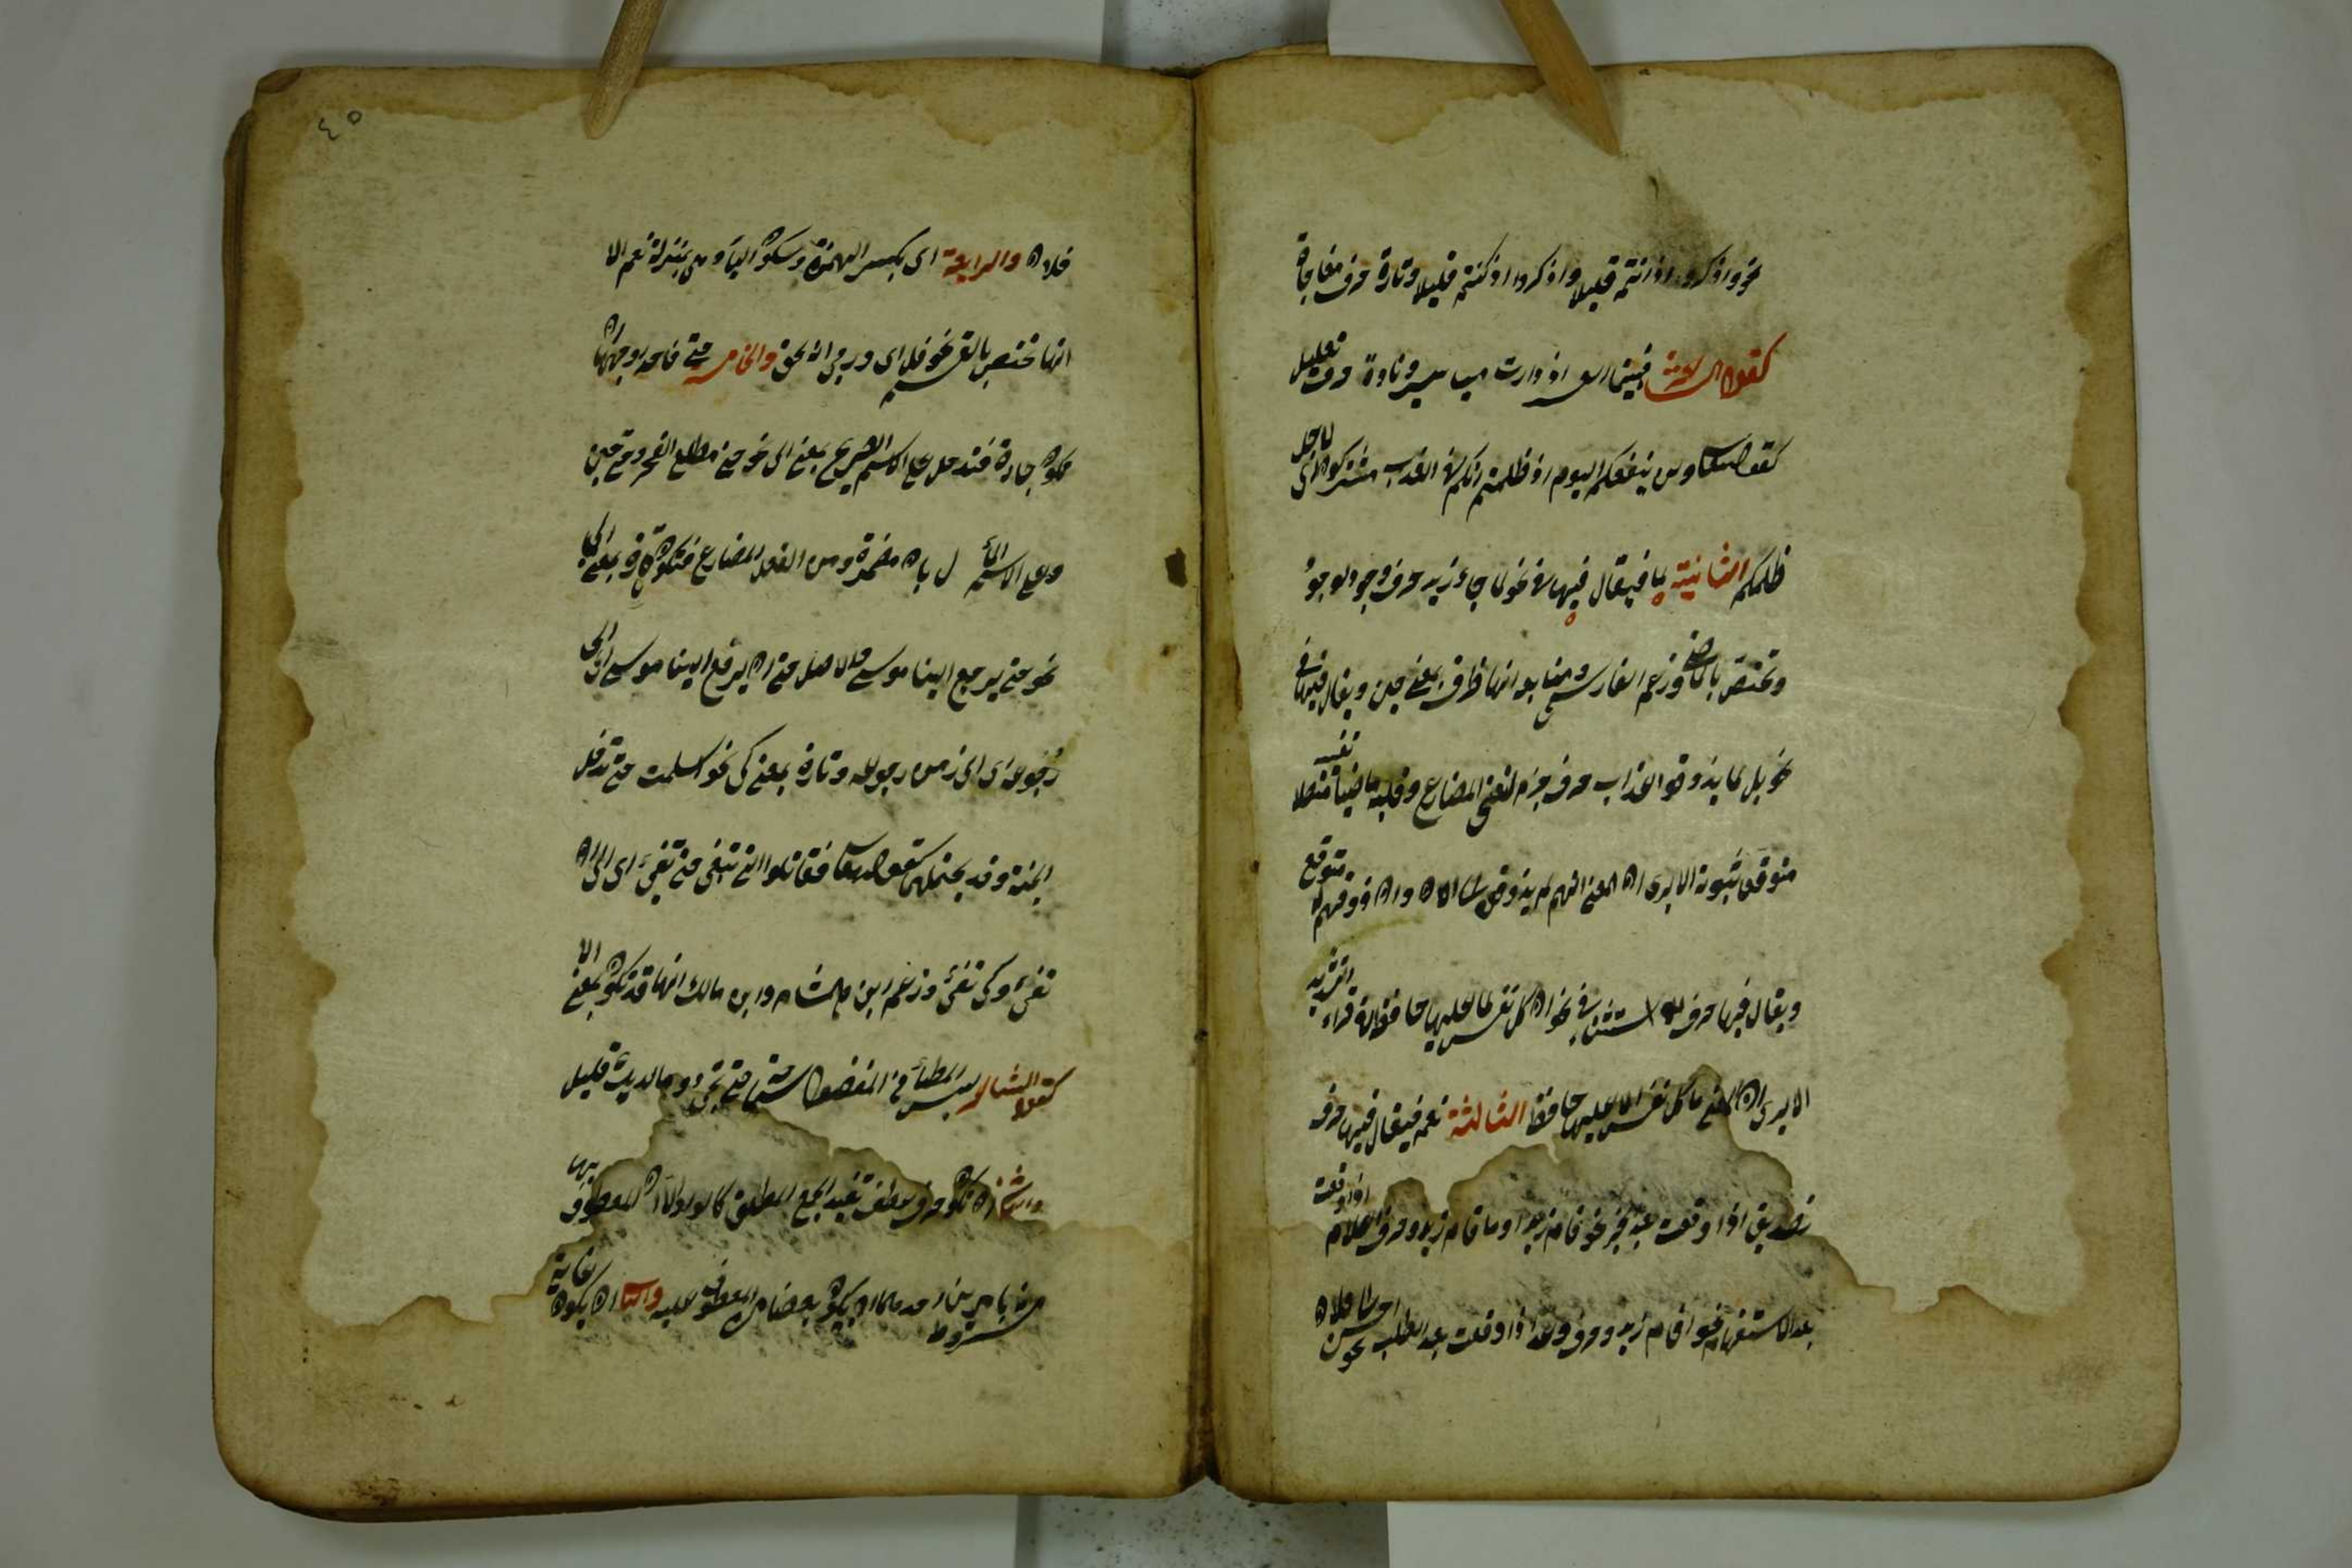 نحو واذكروا اذ انتم قليل واذكروا اذ كنتم قليلا وتارة حرف مفاجاة
كقول الشاعر فبينما العسر اذ دارت مياسير وتارة حرف تعليل
كقوله تعالى ولن ينفعكم اليوم اذ ظلمتم انكم في العذاب مشتركون اى لاجل
ظلمكم الثانية لما فيقال فيها في نحو لما جاء زيد حرف وجود لوجود
وتختص بالماضى وزعم الفارسى ومتابعوه انها ظرف بمعنى حين ويقال فيها في
نحو بل لما يذوقوا العذاب حرف جزم لنفى المضارع وقلبه ماضيا متصلا نفيه
متوقعا ثبوته الا يرى ان المعنى انهم لم يذوقوه الى الان وان ذوقهم له متوقع
ويقال فيها حرف استثناء في نحو ان كل نفس لما عليها حافظ في قراءة التشديد
الا يرى ان المعنى ما كل نفس الا عليها حافظ الثالثة نعم فيقال فيها حرف
تصديق اذا وقعت بعد الخبر نحو قام زيد او ما قام زيد وحرف اعلام اذا وقعت
بعد الاستفهام نحو اقام زيد وحرف وعد اذا وقعت بعد الطلب نحو احسن الى فلان
٤٥
فلان والرابعة اى بكسر الهمزة وسكون الياء وهى بمنزلة نعم الا
انها تختص بالقسم نحو قل اى وربى انه لحق والخامسة حتى فاحد اوجهها ان
تكون جارة فتدخل على الاسم الصريح بمعنى الى نحو حتى مطلع الفجر وحتى حين
وعلى الاسم المأول بان مضمرة ومن الفعل المضارع فتكون تارة بمعنى الى
نحو حتى يرجع الينا موسى والاصل حتى ان يرجع الينا موسى اى الى
رجوعه اى الى زمن رجوعه وتارة بمعنى كى نحو اسلمت حتى تدخل
الجنة وقد يحتملهما كقوله تعالى فقاتلوا التى تبغى حتى تفىء اى الى ان
تفىء وكى تفىء وزعم ابن هشام وابن مالك انها قد تكون بمعنى الا
كقول الشاعر ليس العطاء من الفضول سماحة حتى تجود وما لديك قليل
والثانى ان تكون حرف عطف تفيد الجمع المطلق كالواو الا ان المعطوف بها
مشروط بامرين احدهما ان يكون بعضا من المعطوف عليه والثانى ان يكون غاية